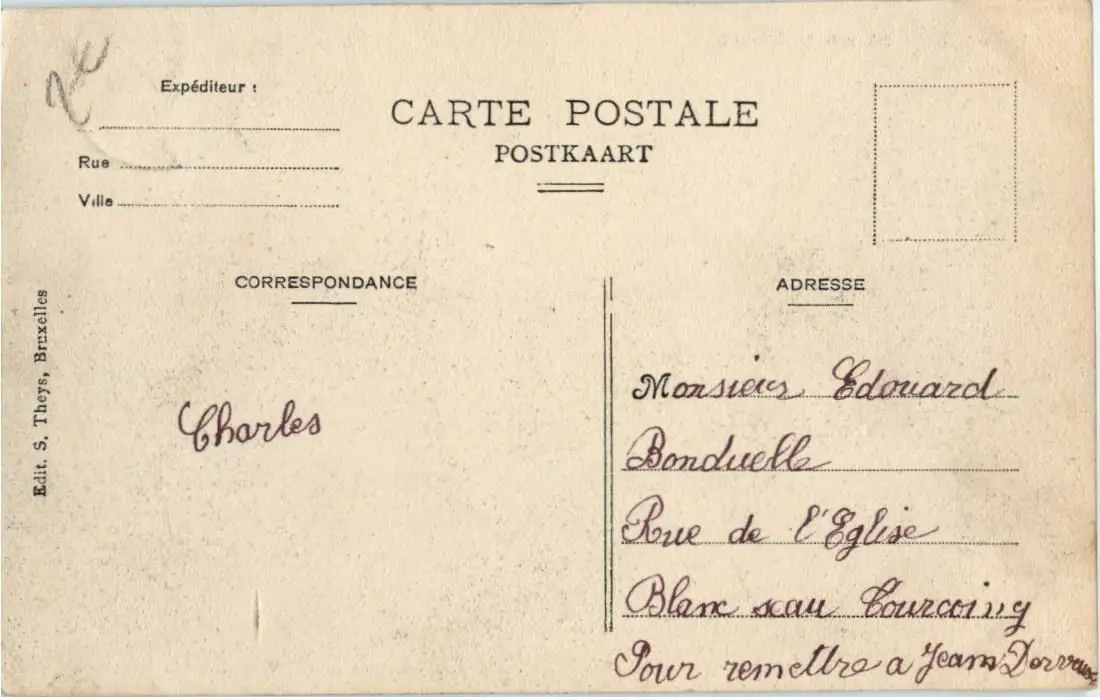 Expéditeur :
CARTE POSTALE
POSTKAART
Rue
Ville
CORRESPONDANCE
ADRESSE
Edit. S. Theys, Bruxelles
Charles
Monsieur Edouard
Bonduelle
Rue de l'Eglise
Blanc seau Tourcoing
Pour remettre a Jeans